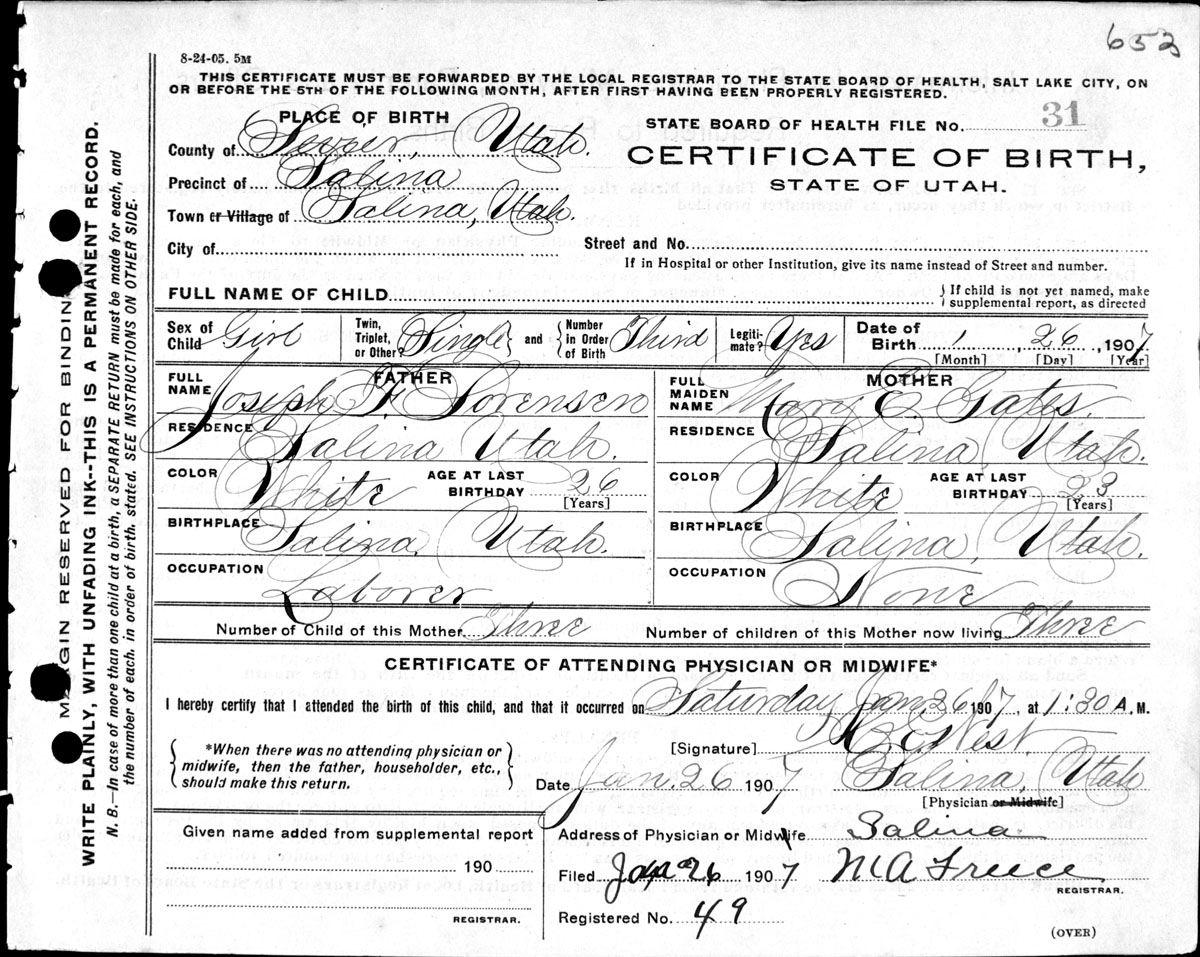 652
8-24-05. 5M
THIS CERTIFICATE MUST BE FORWARDED BY THE LOCAL REGISTRAR TO THE STATE BOARD OF HEALTH, SALT LAKE CITY, ON
OR BEFORE THE 5TH OF THE FOLLOWING MONTH, AFTER FIRST HAVING BEEN PROPERLY REGISTERED.
PLACE OF BIRTH
STATE BOARD OF HEALTH FILE No. 31
County of Sevier, Utah.
CERTIFICATE OF BIRTH,
Precinct of Salina
STATE OF UTAH.
Town or Village of Salina, Utah.
City of
Street and No.
If in Hospital or other Institution, give its name instead of Street and number.
FULL NAME OF CHILD
{ If child is not yet named, make
supplemental report, as directed
Sex of Child Girl
Twin, Triplet, or Other? Single and Number in Order of Birth Third
Legitimate? Yes
Date of Birth 1, 26, 1907
[Month] [Day] [Year]
FATHER
FULL NAME Joseph F. Sorensen
RESIDENCE Salina Utah.
COLOR White AGE AT LAST BIRTHDAY 26 [Years]
BIRTHPLACE Salina, Utah.
OCCUPATION Laborer
MOTHER
FULL MAIDEN NAME Mary E. Gates.
RESIDENCE Salina, Utah.
COLOR White AGE AT LAST BIRTHDAY 23 [Years]
BIRTHPLACE Salina, Utah.
OCCUPATION None
Number of Child of this Mother Three Number of children of this Mother now living Three
CERTIFICATE OF ATTENDING PHYSICIAN OR MIDWIFE*
I hereby certify that I attended the birth of this child, and that it occurred on Saturday Jan. 26 1907, at 1:30 A.M.
*When there was no attending physician or
midwife, then the father, householder, etc.,
should make this return.
[Signature] West.
Date Jan 26 1907 Salina, Utah
[Physician or Midwife]
Given name added from supplemental report
190
REGISTRAR.
Address of Physician or Midwife Salina
Filed Jan 26 1907 M A Freece
REGISTRAR.
Registered No. 49
(OVER)
MARGIN RESERVED FOR BINDING
WRITE PLAINLY, WITH UNFADING INK--THIS IS A PERMANENT RECORD.
N. B.—In case of more than one child at a birth, a SEPARATE RETURN must be made for each, and
the number of each, in order of birth, stated. SEE INSTRUCTIONS ON OTHER SIDE.